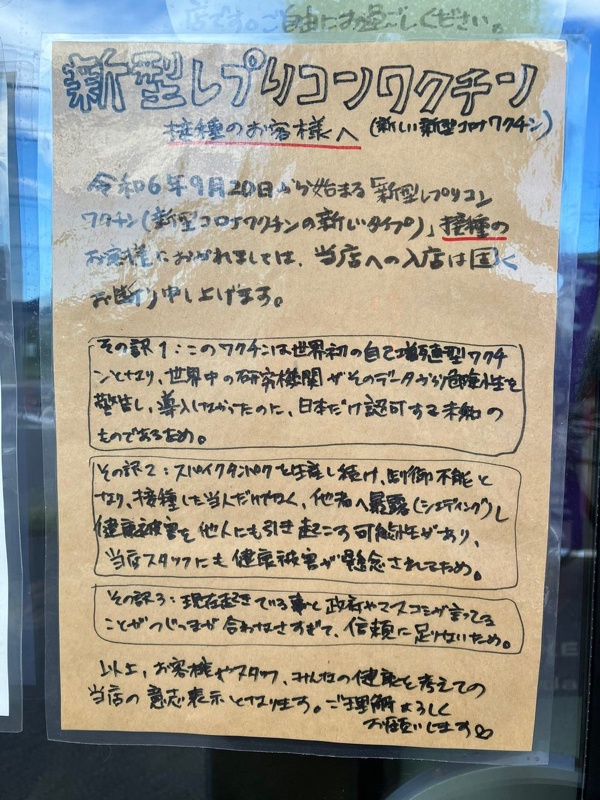 店です。ご自由にお過ごしください。
新型レプリコンワクチン
接種のお客様へ (新しい新型コロナワクチン)
令和6年9月20日から始まる「新型レプリコン
ワクチン(新型コロナワクチンの新しいタイプ)」接種の
お客様におかれましては、当店への入店は固く
お断り申し上げます。
その訳1:このワクチンは世界初の自己増殖型ワクチ
ンとなり、世界中の研究機関がそのデータから危険性を
警告し、導入しなかったのに、日本だけ認可する未知の
ものであるため。
その訳2:スパイクタンパクを生産し続け、制御不能と
なり、接種した当人だけでなく、他者へ暴露(シェディング)し
健康被害を他人にも引き起こす可能性があり、
当店スタッフにも健康被害が懸念されてため。
その訳3:現在起きている事と政府やマスコミが言ってる
ことがつじつまが合わなさすぎて、信頼に足りないため。
以上、お客様やスタッフ、みんなの健康を考えての
当店の意志表示となります。ご理解よろしく
お願いします